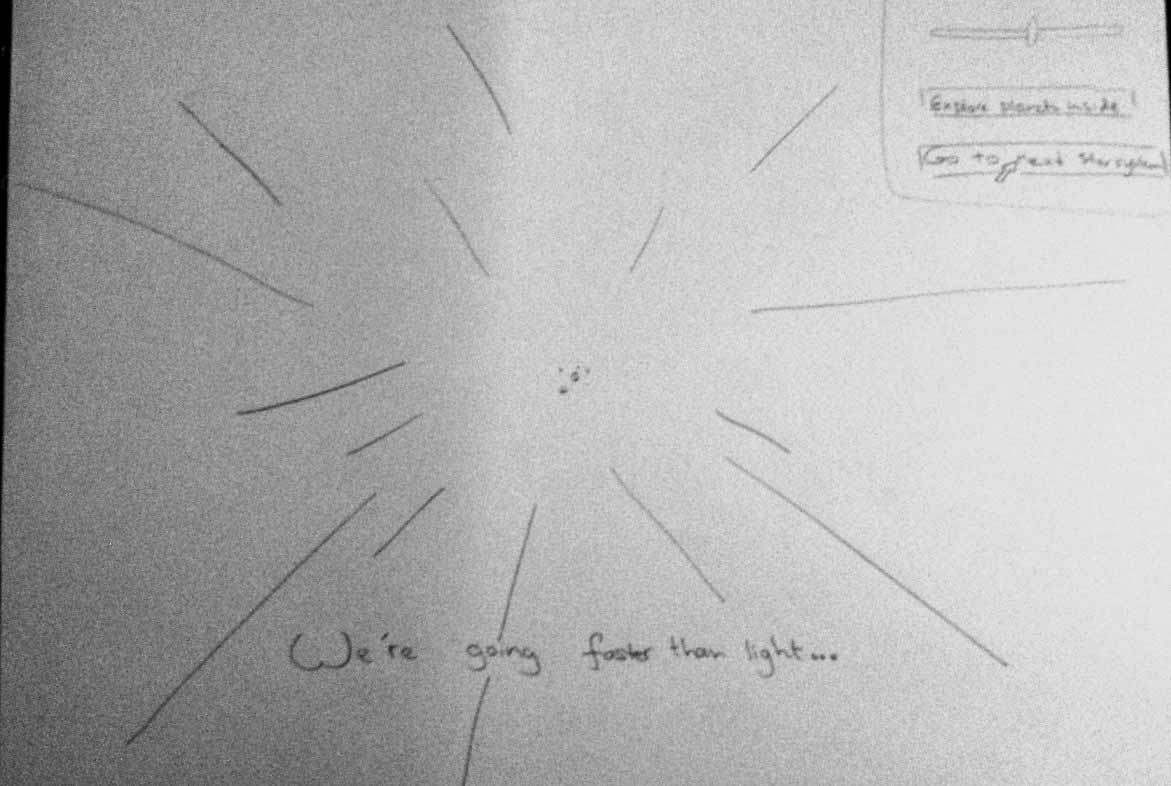 Explore planets inside
Go to next starsystem
We're going faster than light...